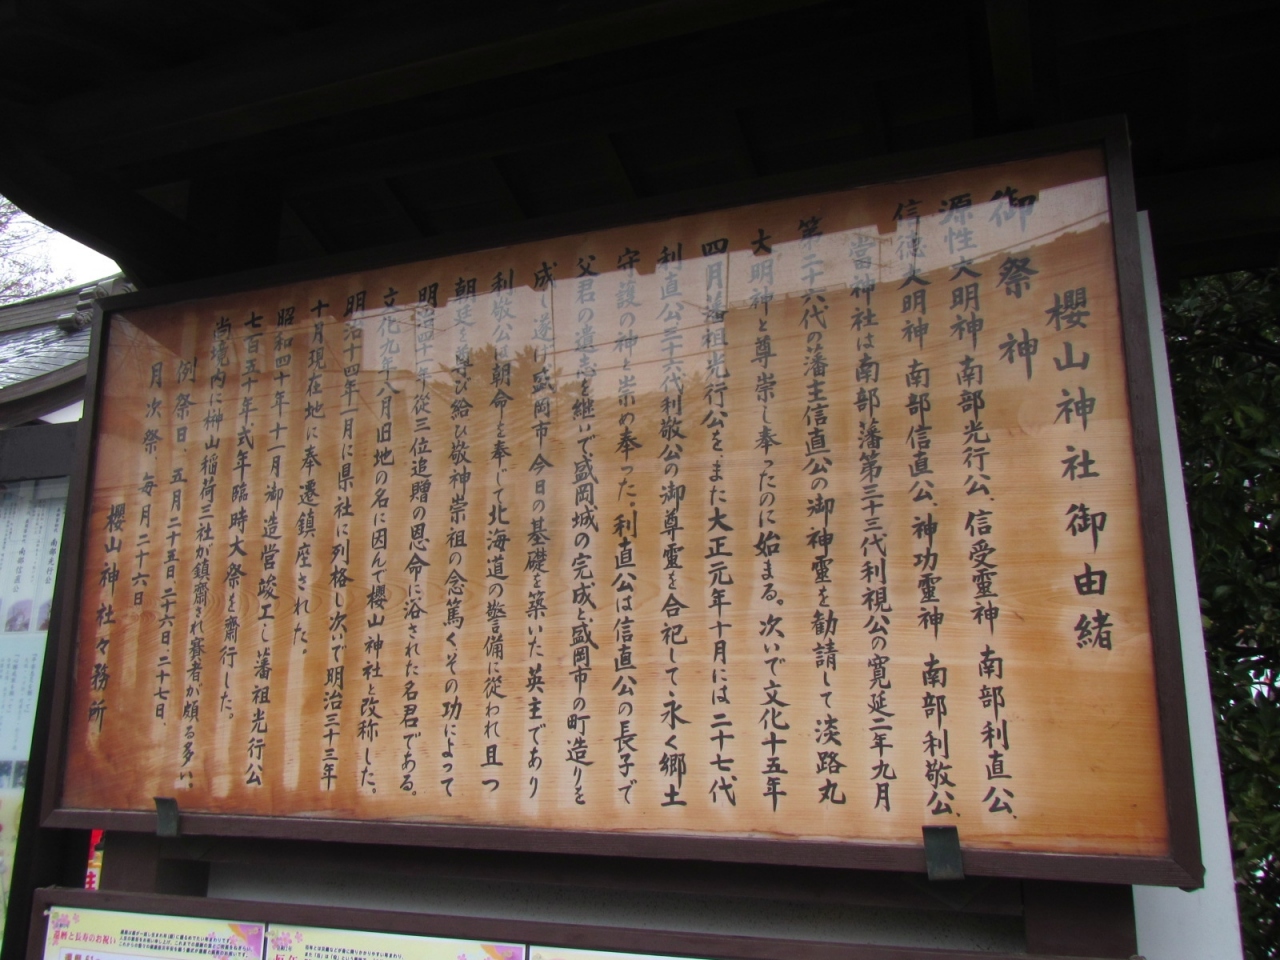 櫻山神社御由緒
御祭神
源性大明神 南部光行公、信受靈神 南部利直公、
信德大明神 南部信直公、神功靈神 南部利敬公、
當神社は南部藩第三十三代利視公の寛延二年九月
第二十六代の藩主信直公の御神靈を勧請して淡路丸
大明神と尊崇し奉ったのに始まる。次いで文化十五年
四月藩祖光行公を、また大正元年十月には二十七代
利直公三十六代利敬公の御尊靈を合祀して永く郷土
守護の神と崇め奉った。利直公は信直公の長子で
父君の遺志を継いで、盛岡城の完成と、盛岡市の町造りを
成し遂げ盛岡市今日の基礎を築いた英主であり
利敬公は朝命を奉じて北海道の警備に從われ且つ
朝廷を尊び給ひ敬神崇祖の念篤くその功によって
明治四十年從三位追贈の恩命に浴された名君である。
文化九年八月旧地の名に因んで櫻山神社と改称した。
明治十四年一月に県社に列格し次いで明治三十三年
十月現在地に奉遷鎮座された。
昭和四十年十一月御造営竣工し藩祖光行公
七百五十年、式年臨時大祭を齋行した。
当境内に榊山稲荷三社が鎮齋され賽者が頗る多い。
例祭日、五月二十五日、二十六日、二十七日、
月次祭 毎月二十六日
櫻山神社々務所